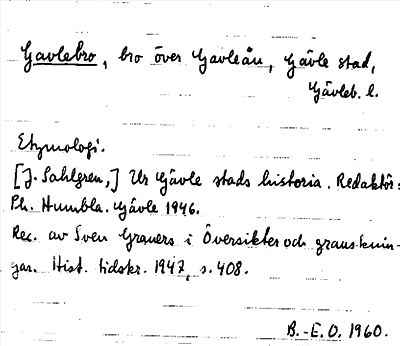 Gavlebro, bro över Gavleån, Gävle stad,
Gävleb. l.
Etymologi.
[J. Sahlgren,] Ur Gävle stads historia. Redaktör:
Ph. Humbla. Gävle 1946.
Rec. av Sven Grauers i Översikter och gransknin-
gar. Hist. tidskr. 1947, s. 408.
B.-E. O. 1960.